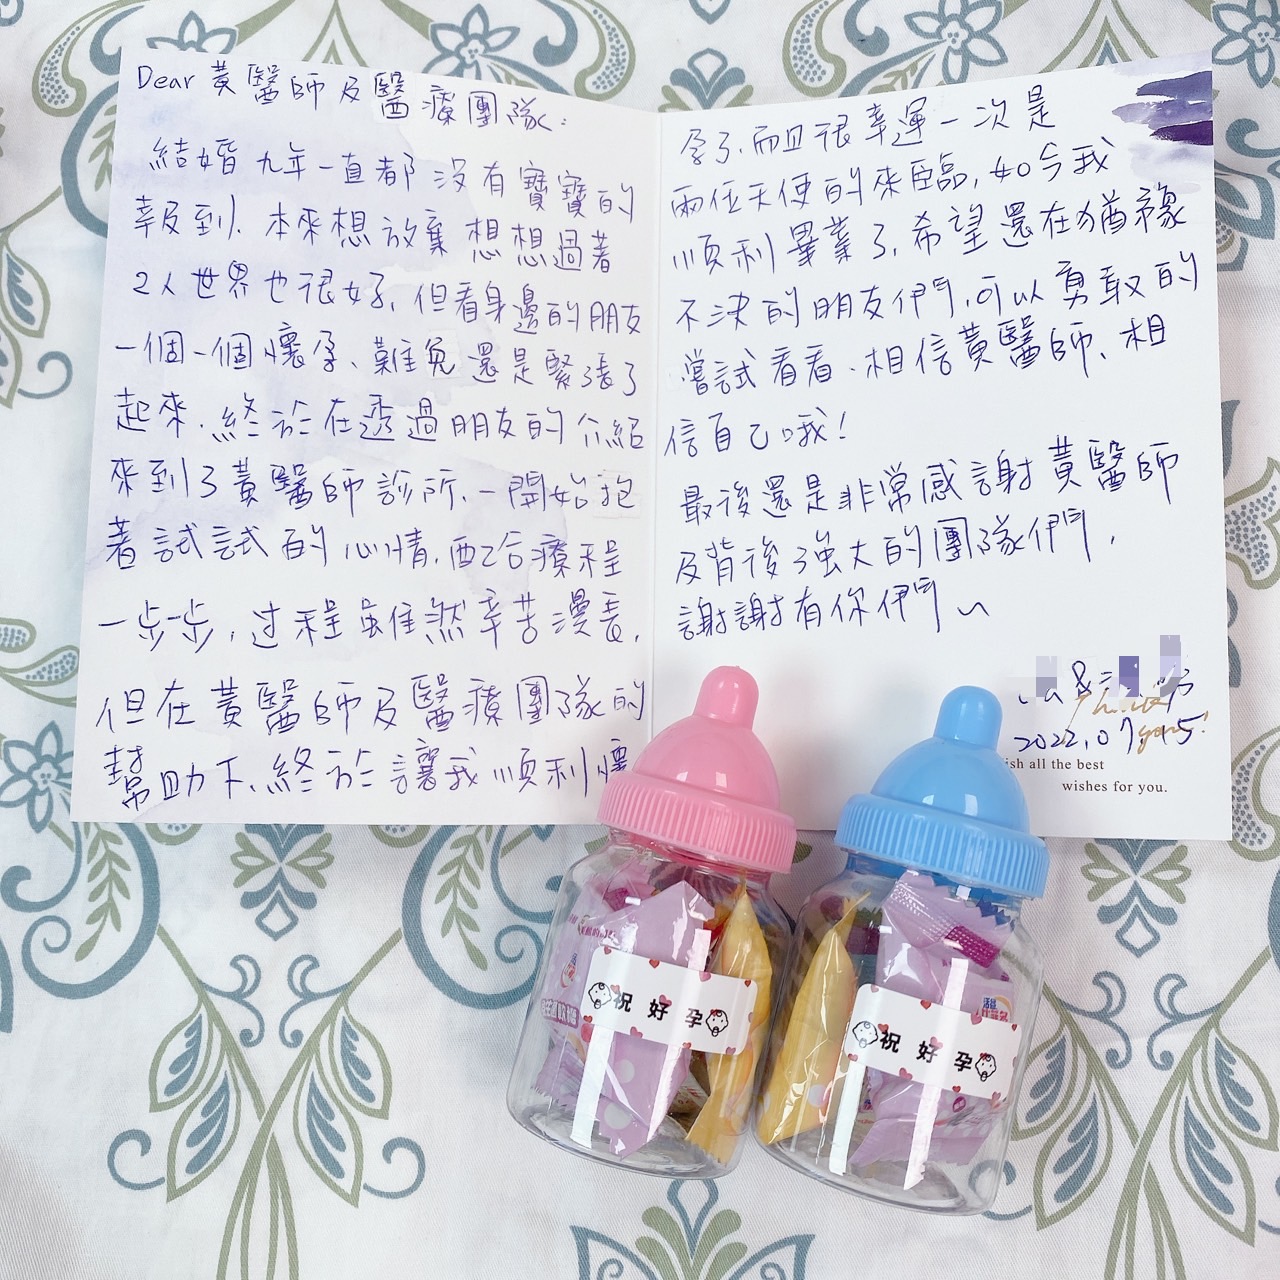 Dear 黃醫師及醫療團隊:
結婚九年一直都沒有寶寶的
報到、本來想放棄想想過著
2人世界也很好,但看身邊的朋友
一個一個懷孕、難免還是緊張了
起來、終於在透過朋友的介紹
來到了黃醫師診所、一開始抱
著試試的心情,配合療程
一步一步,过程雖然辛苦漫長,
但在黃醫師及醫療團隊的
幫助下、終於讓我順利懷
孕了,而且很幸運一次是
兩位天使的來臨,如今我
順利畢業了,希望還在猶豫
不決的朋友們,可以勇敢的
嚐試看看、相信黃醫師、相
信自己哦!
最後還是非常感謝黃醫師
及背後強大的團隊們,
謝謝有你們~
&
Thank
2022.07.15
you!
ish all the best
wishes for you.
祝好孕
祝好孕